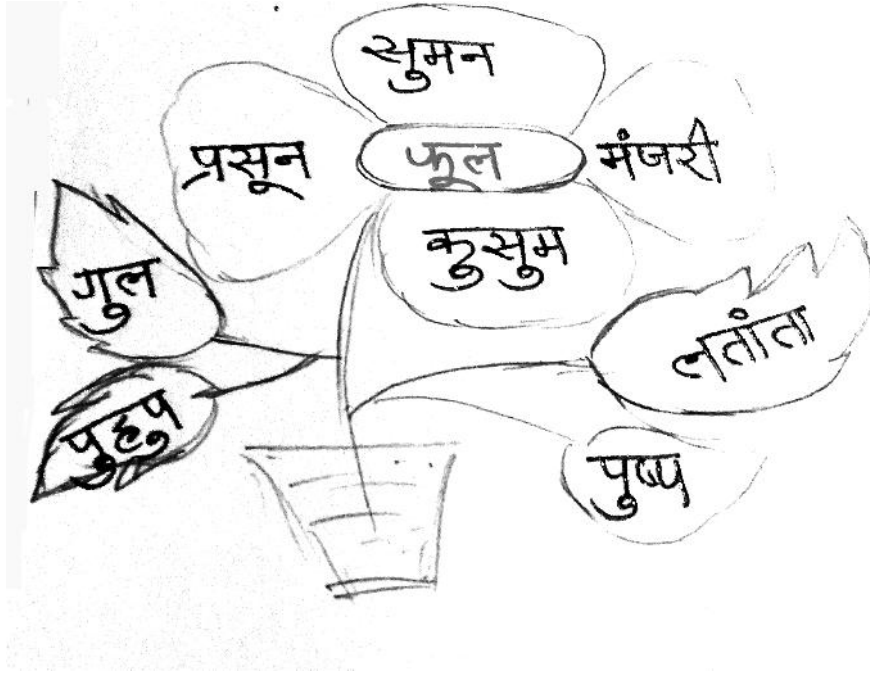 सुमन
प्रसून
फूल
मंजरी
कुसुम
गुल
लतांता
पुहुप
पुष्प